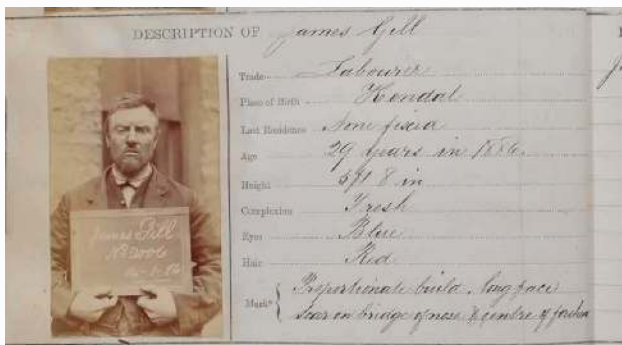 DESCRIPTION OF James Gill
Trade Labourer
Place of Birth Kendal
Last Residence None fixed
Age 29 years in 1886.
Height 5 ft 8 in
Complexion Fresh
Eyes Blue
Hair Red
Marks Proportionate build. Long face
Scar on bridge of nose & centre of forehead
James Gill
No 2006